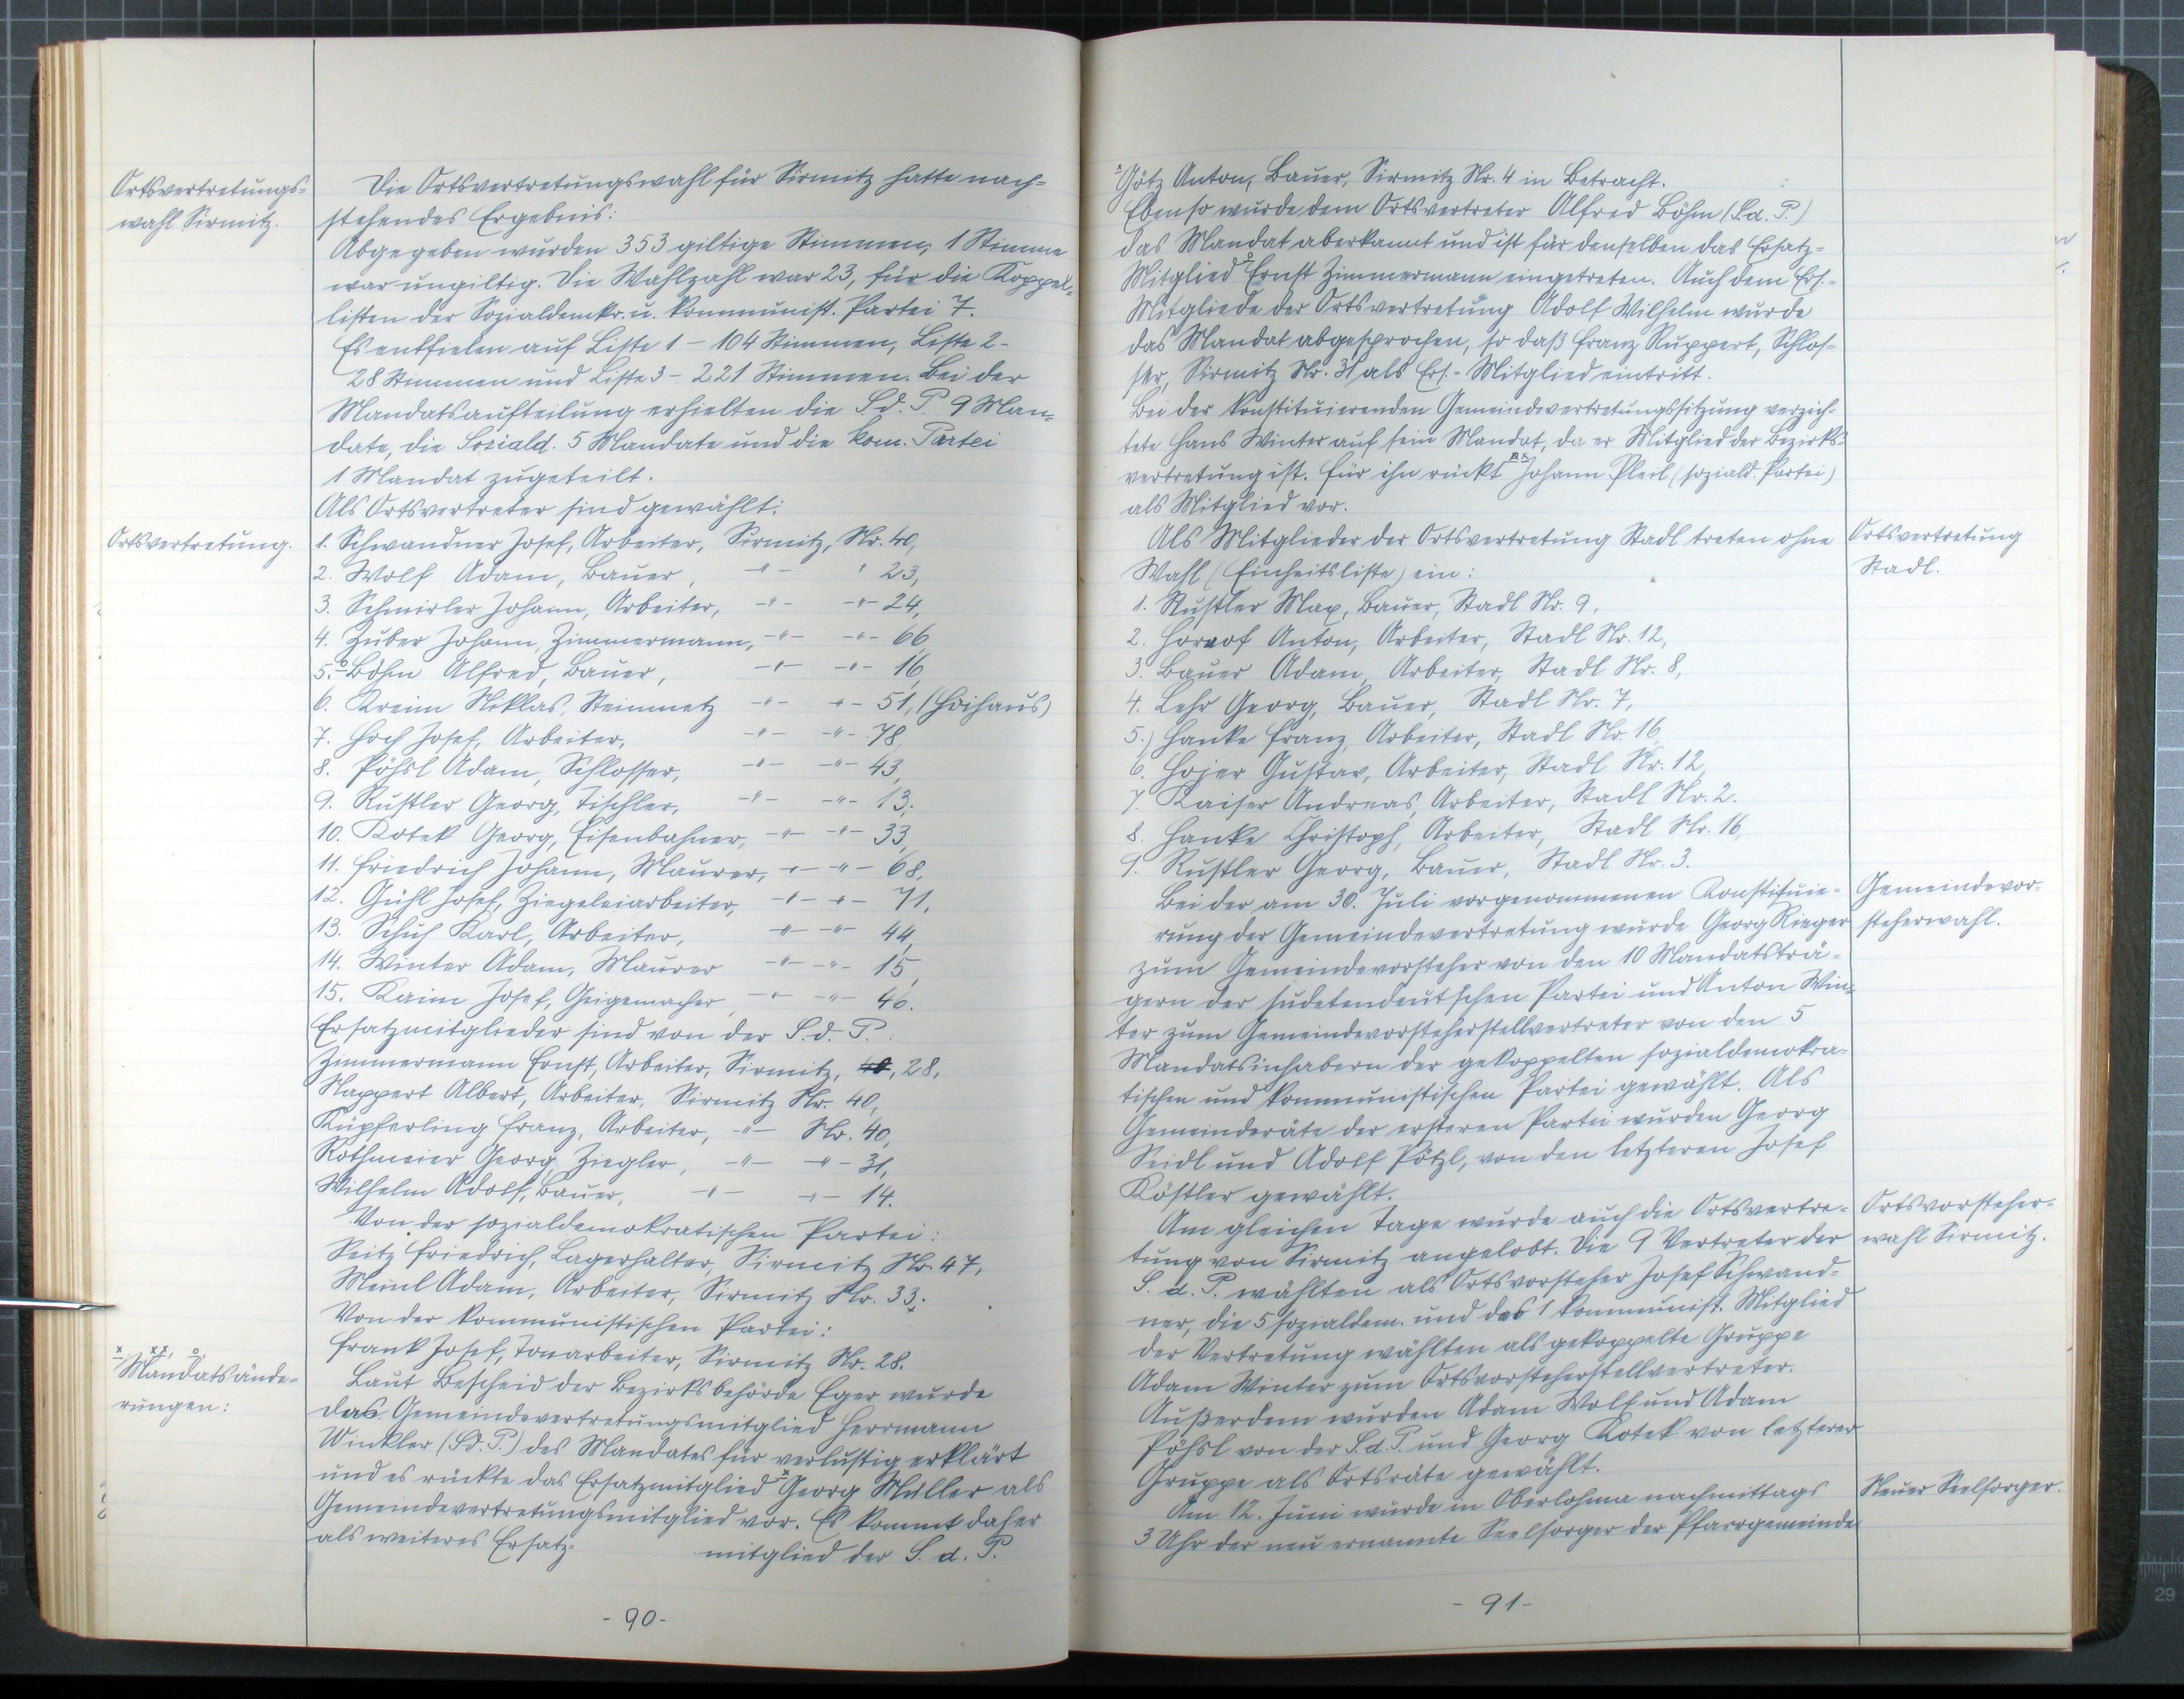 Ortsvertretungs=
wahl Sirmitz.
Die Ortsvertretungswahl für Sirmitz hatte nach=
stehendes Ergebnis:
Abgegeben wurden 353 giltige Stimmen, 1 Stimme
war ungiltig. Die Wahlzahl war 23, für die Koppel=
listen der Sozialdemkr. u. kommunist. Partei 7.
Es entfielen auf Liste 1 - 104 Stimmen, Liste 2-
28 Stimmen und Liste 3 - 221 Stimmen. Bei der
Mandatsaufteilung erhielten die S.d.P. 9 Man=
date, die Soziald. 5 Mandate und die kom. Partei
1 Mandat zugeteilt.
Als Ortsvertreter sind gewählt:
Ortsvertretung.
1. Schwandner Josef, Arbeiter, Sirmitz, Nr. 40,
2. Wolf Adam, Bauer, -"- " 23,
3. Schmirler Johann, Arbeiter, -"- -"- 24,
4. Zuber Johann, Zimmermann, -"- -"- 66,
5. Böhm Alfred, Bauer, -"- -"- 16,
6. Kreim Niklas, Steinmetz -"- -"- 51, (Hoihaus)
7. Hoch Josef, Arbeiter, -"- -"- 78,
8. Pöhsl Adam, Schlosser, -"- -"- 43,
9. Rustler Georg, Tischler, -"- -"- 13,
10. Kotek Georg, Eisenbahner, -"- -"- 33,
11. Friedrich Johann, Maurer, -"- -"- 68,
12. Gühl Josef, Ziegeleiarbeiter, -"- -"- 71,
13. Schuh Karl, Arbeiter, -"- -"- 44,
14. Winter Adam, Maurer -"- -"- 15,
15. Keim Josef, Geigemacher, -"- -"- 46.
Ersatzmitglieder sind von der S.d.P.:
Zimmermann Ernst, Arbeiter, Sirmitz, 28,
Nappert Albert, Arbeiter, Sirmitz Nr. 40,
Küpferling Franz, Arbeiter, -"- Nr. 40,
Rothmeier Georg, Ziegler, -"- -"- 31,
Wilhelm Adolf, Bauer, -"- -"- 14.
Von der sozialdemokratischen Partei:
Seitz Friedrich, Lagerhalter, Sirmitz Nr. 47,
Meinl Adam, Arbeiter, Sirmitz Nr. 33.
Von der kommunistischen Partei:
Frank Josef, Tonarbeiter, Sirmitz Nr. 28.
x xx, o,
Mandatsände=
rungen:
Laut Bescheid der Bezirksbehörde Eger wurde
das Gemeindevertretungsmitglied Herrmann
Winkler (Sd.P.) des Mandates für verlustig erklärt
und es rückte das Ersatzmitglied x Georg Müller als
Gemeindevertretungsmitglied vor. Es kommt daher
als weiteres Ersatz= mitglied der S.d.P.
- 90 -
x Götz Anton, Bauer, Sirmitz Nr. 4 in Betracht.
Ebenso wurde dem Ortsvertreter Alfred Böhm (S.d.P.)
das Mandat aberkannt und ist für denselben das Ersatz=
Mitglied o Ernst Zimmermann eingetreten. Auch dem Ers.=
Mitgliede der Ortsvertretung Adolf Wilhelm wurde
das Mandat abgesprochen, so daß Franz Ruppert, Schlos=
ser, Sirmitz Nr. 31 als Ers.-Mitglied eintritt.
Bei der konstituierenden Gemeindevertretungssitzung verzich=
tete Hans Winter auf sein Mandat, da er Mitglied der Bezirks=
vertretung ist. Für ihn rückt xx Johann Pleil (soziald. Partei)
als Mitglied vor.
Als Mitglieder der Ortsvertretung Stadl treten ohne
Wahl (Einheitsliste) ein:
Ortsvertretung
Stadl.
1. Rustler Max, Bauer, Stadl Nr. 9,
2. Anton, Arbeiter, Stadl Nr. 12,
3. Bauer Adam, Arbeiter, Stadl Nr. 8,
4. Lehr Georg, Bauer, Stadl Nr. 7,
5.) Hanke Franz, Arbeiter, Stadl Nr. 16,
6. Hojer Gustav, Arbeiter, Stadl Nr. 12,
7. Kaiser Andreas, Arbeiter, Stadl Nr. 2.
8. Hanke Christoph, Arbeiter, Stadl Nr. 16,
9. Rustler Georg, Bauer, Stadl Nr. 3.
Bei der am 30. Juli vorgenommenen Konstituie=
rung der Gemeindevertretung wurde Georg Rieger
zum Gemeindevorsteher von den 10 Mandatsträ=
gern der sudetendeutschen Partei und Anton Win=
ter zum Gemeindevorsteherstellvertreter von den 5
Mandatsinhabern der gekoppelten sozialdemokra=
tischen und kommunistischen Partei gewählt. Als
Gemeinderäte der ersteren Partei wurden Georg
Seidl und Adolf Pötzl, von den letzteren Josef
Köstler gewählt.
Gemeindevor=
steherwahl.
Am gleichen Tage wurde auch die Ortsvertre=
tung von Sirmitz angelobt. Die 9 Vertreter der
S.d.P. wählten als Ortsvorsteher Josef Schwand=
ner, die 5 sozialdem. und das 1 kommunist. Mitglied
der Vertretung wählten als gekoppelte Gruppe
Adam Winter zum Ortsvorsteherstellvertreter.
Außerdem wurden Adam Wolf und Adam
Pöhsl von der S.d.P. und Georg Kotek von letzterer
Gruppe als Ortsräte gewählt.
Ortsvorsteher=
wahl Sirmitz.
Am 12. Juni wurde in Oberlohma nachmittags
3 Uhr der neu ernannte Seelsorger der Pfarrgemeinde
Neuer Seelsorger.
- 91 -
29